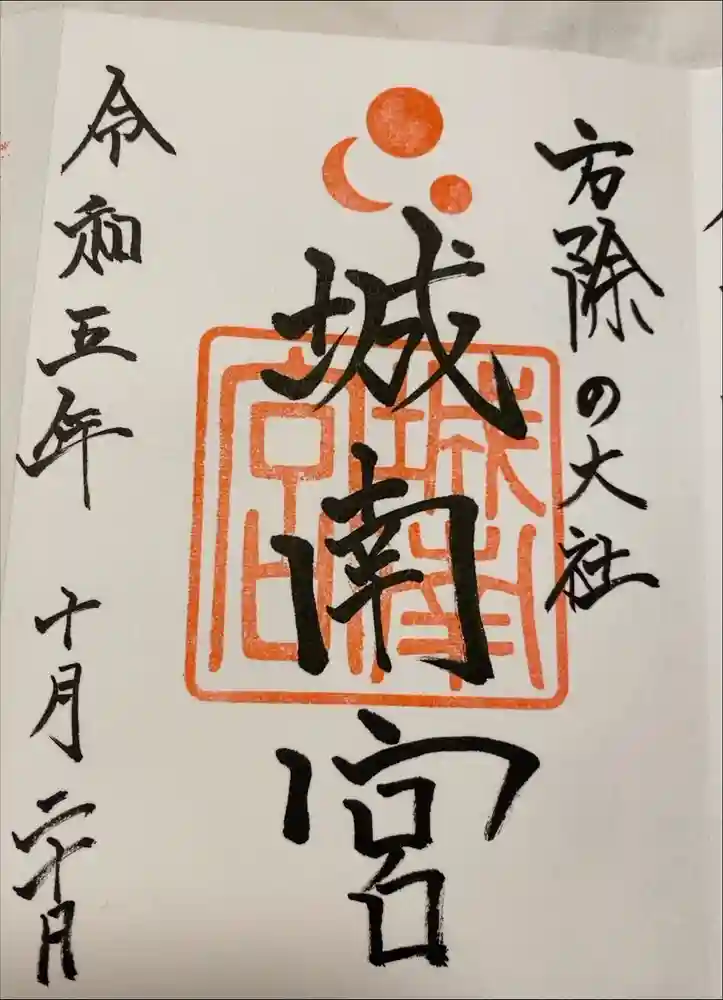 方除の大社
城南宮
城南宮
令和五年 十月二十日